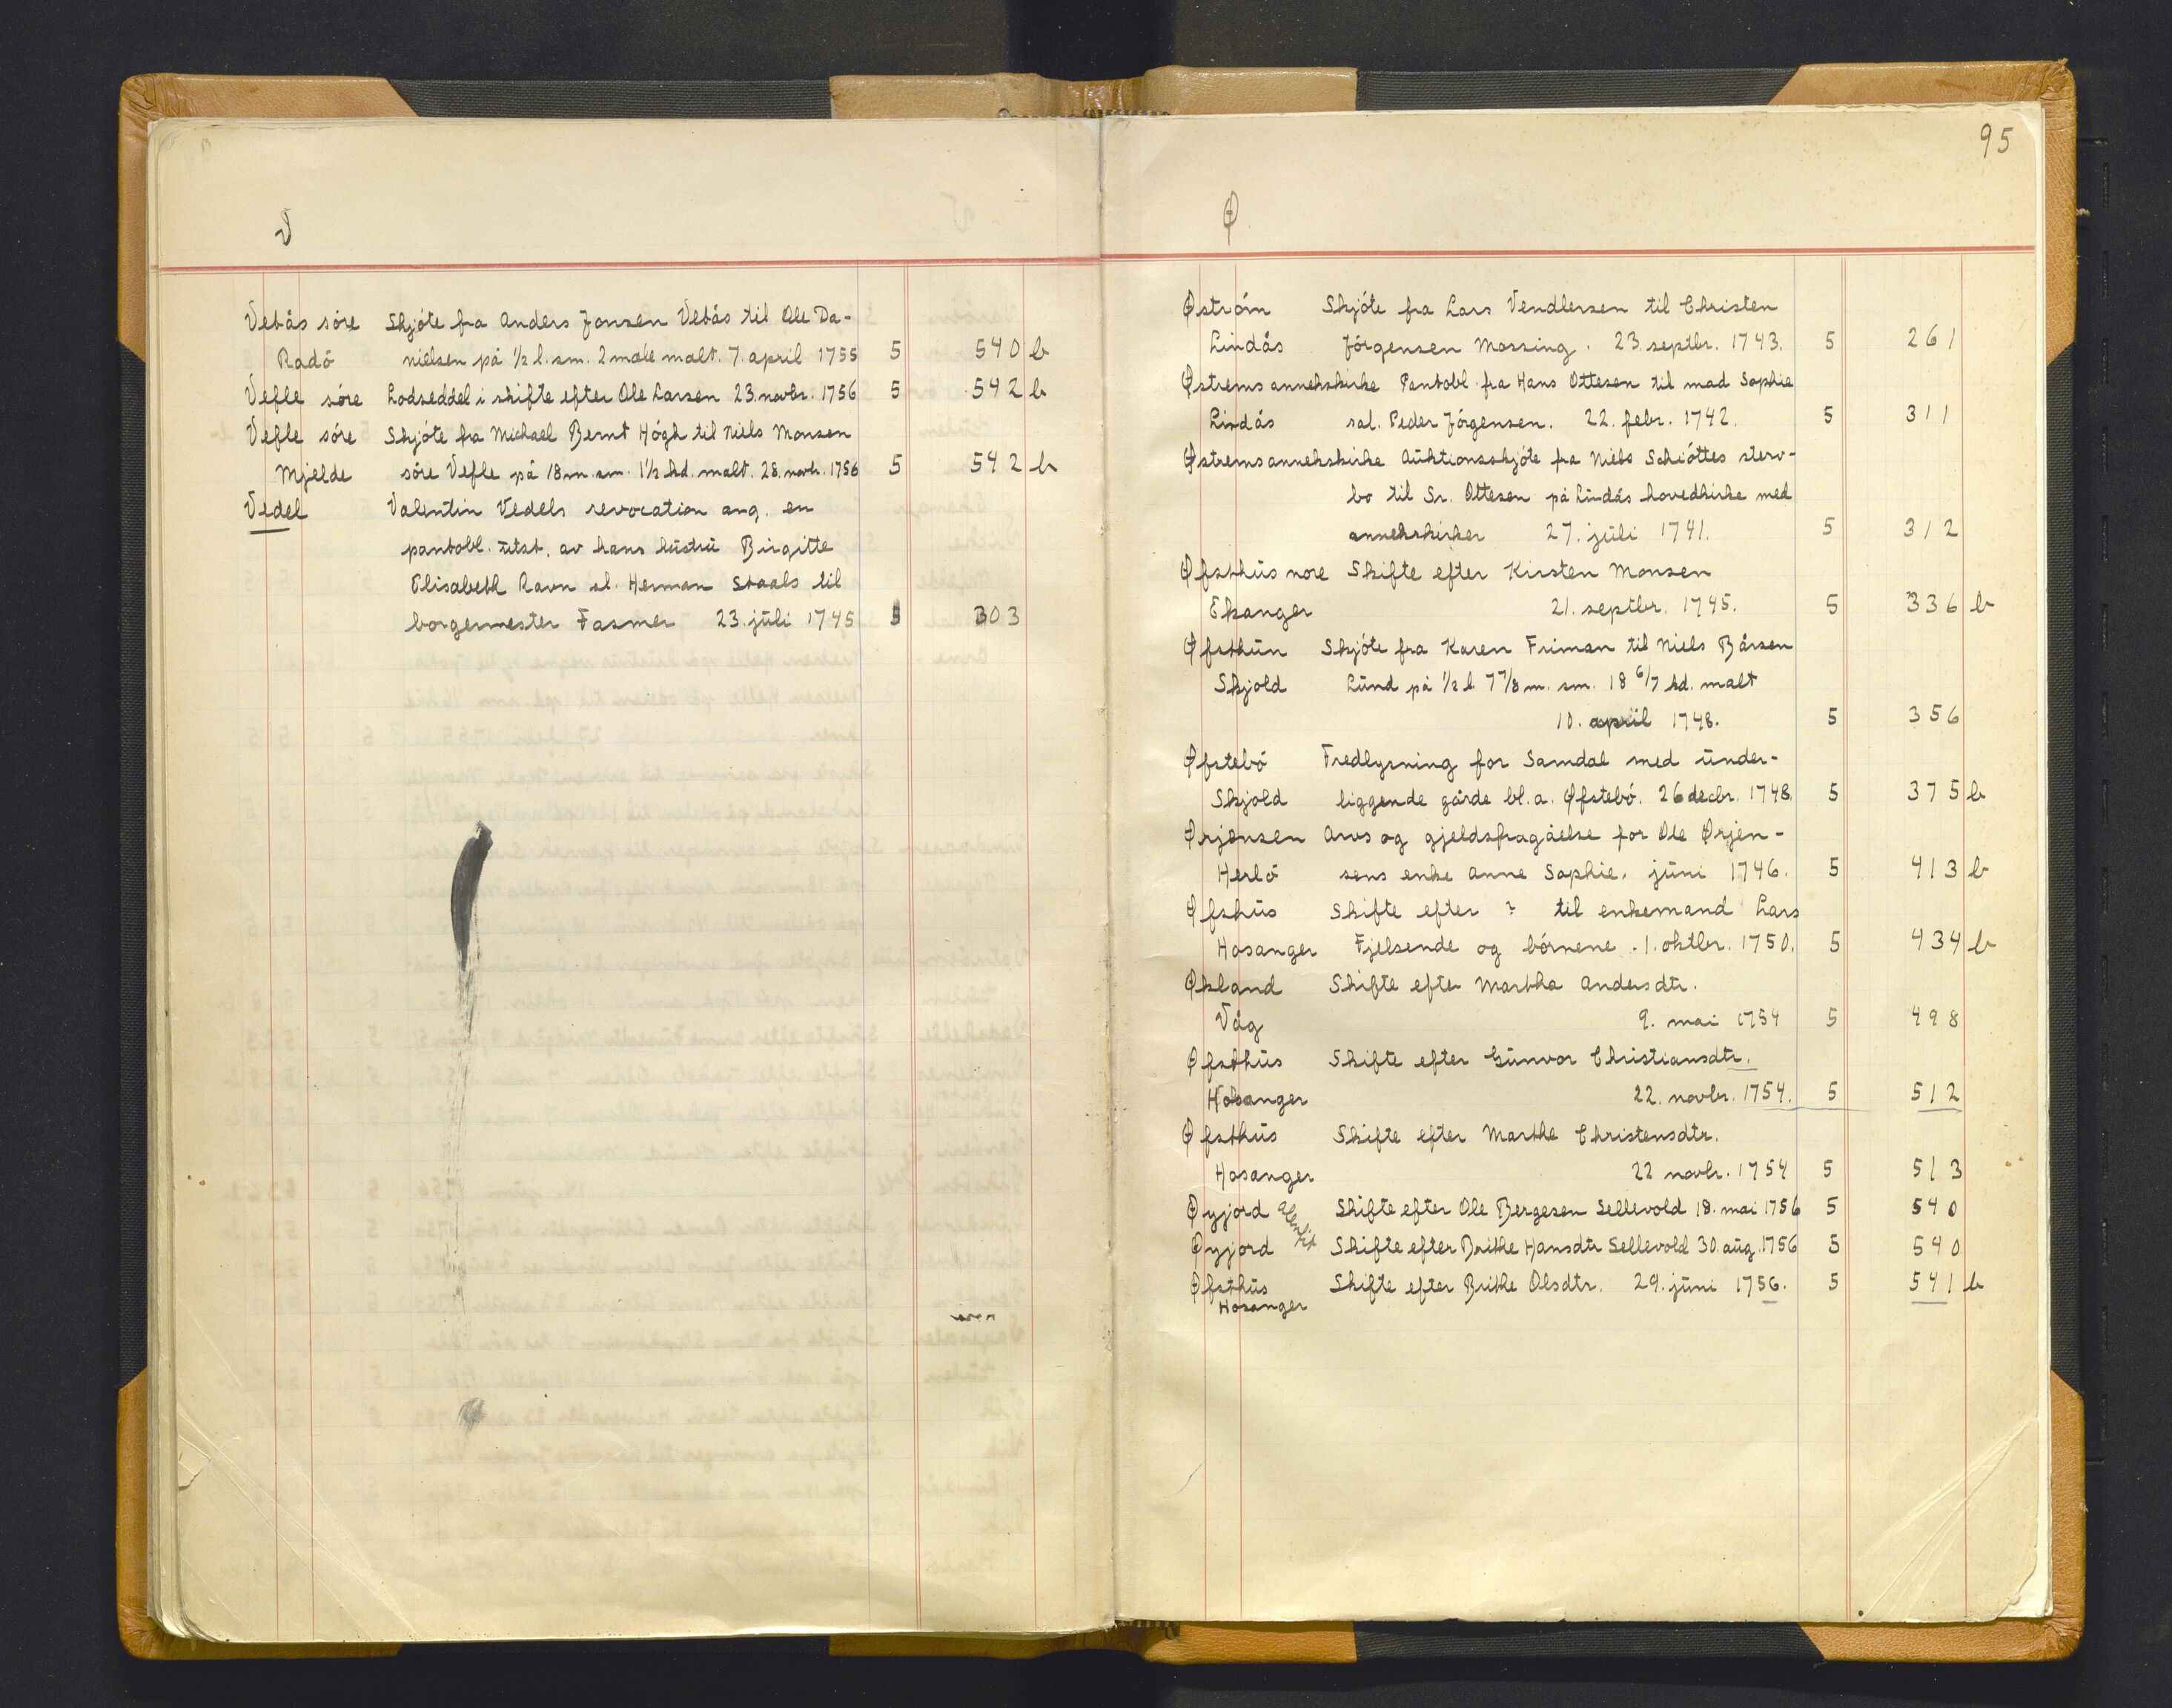 V
Vebås söre Skjöte fra Anders Jonsen Vebås til Ole Da-
Radö nielsen på 1/2 l. sm. 2 mæle malt. 7. april 1755 5 540 b
Vefle söre Lodseddel i skifte efter Ole Larsen 23. novbr. 1756 5 542 b
Vefle söre Skjöte fra Michael Bernt Högh til Niels Monsen
Mjelde söre Vefle på 18 m. sm. 1 1/2 hd. malt. 28. novbr. 1756 5 542 b
Vedel Valentin Vedels revocation ang. en
pantobl. utst. av hans hustru Birgitte
Elisabeth Ravn sl. Herman Staals til
borgermester Fasmer 23. juli 1745 5 303
95
Ø
Øström Skjöte fra Lars Vendlersen til Christen
Lindås Jörgensen Mossing. 23. septbr. 1743. 5 261
Østrems annekskirke Pantobl. fra Hans Ottesen til mad Sophie
Lindås sal. Peder Jörgensen. 22. febr. 1742. 5 311
Østrems annekskirke Auktionsskjöte fra Niels Schiöttes sterv-
bo til Sr. Ottesen på Lindås hovedkirke med
annekskirker 27. juli 1741. 5 312
Øfsthus nore Skifte efter Kirsten Monsen
Ekanger 21. septbr. 1745. 5 336 b
Øfsthun Skjöte fra Karen Friman til Niels Bårsen
Skjold Lund på 1/2 l 7 7/8 m. sm. 18 6/7 kd. malt
10. april 1748. 5 356
Øfstebö Fredlysning for Samdal med under-
Skjold liggende gårde bl. a. Øfstebö. 26 decbr. 1748. 5 375 b
Ørjensen Arvs og gjeldsfragåelse for Ole Ørjen-
Herlö sens enke Anne Sophie. juni 1746. 5 413 b
Øfshus Skifte efter ? til enkemand Lars
Hosanger Fjelsende og börnene. 1. oktbr. 1750. 5 434 b
Økland Skifte efter Martha Andersdtr.
Våg 9. mai 1754 5 498
Øfsthus Skifte efter Gunvor Christiansdtr.
Hosanger 22. novbr. 1754. 5 512
Øfsthus Skifte efter Marthe Christensdtr.
Hosanger 22 novbr. 1754 5 513
Øyjord Skifte efter Ole Bergesen Sellevold 18. mai 1756 5 540
Øyjord Skifte efter Brithe Hansdtr Sellevold 30. aug. 1756 5 540
Øfsthus Skifte efter Brithe Olsdtr. 29. juni 1756. 5 541 b
Hosanger